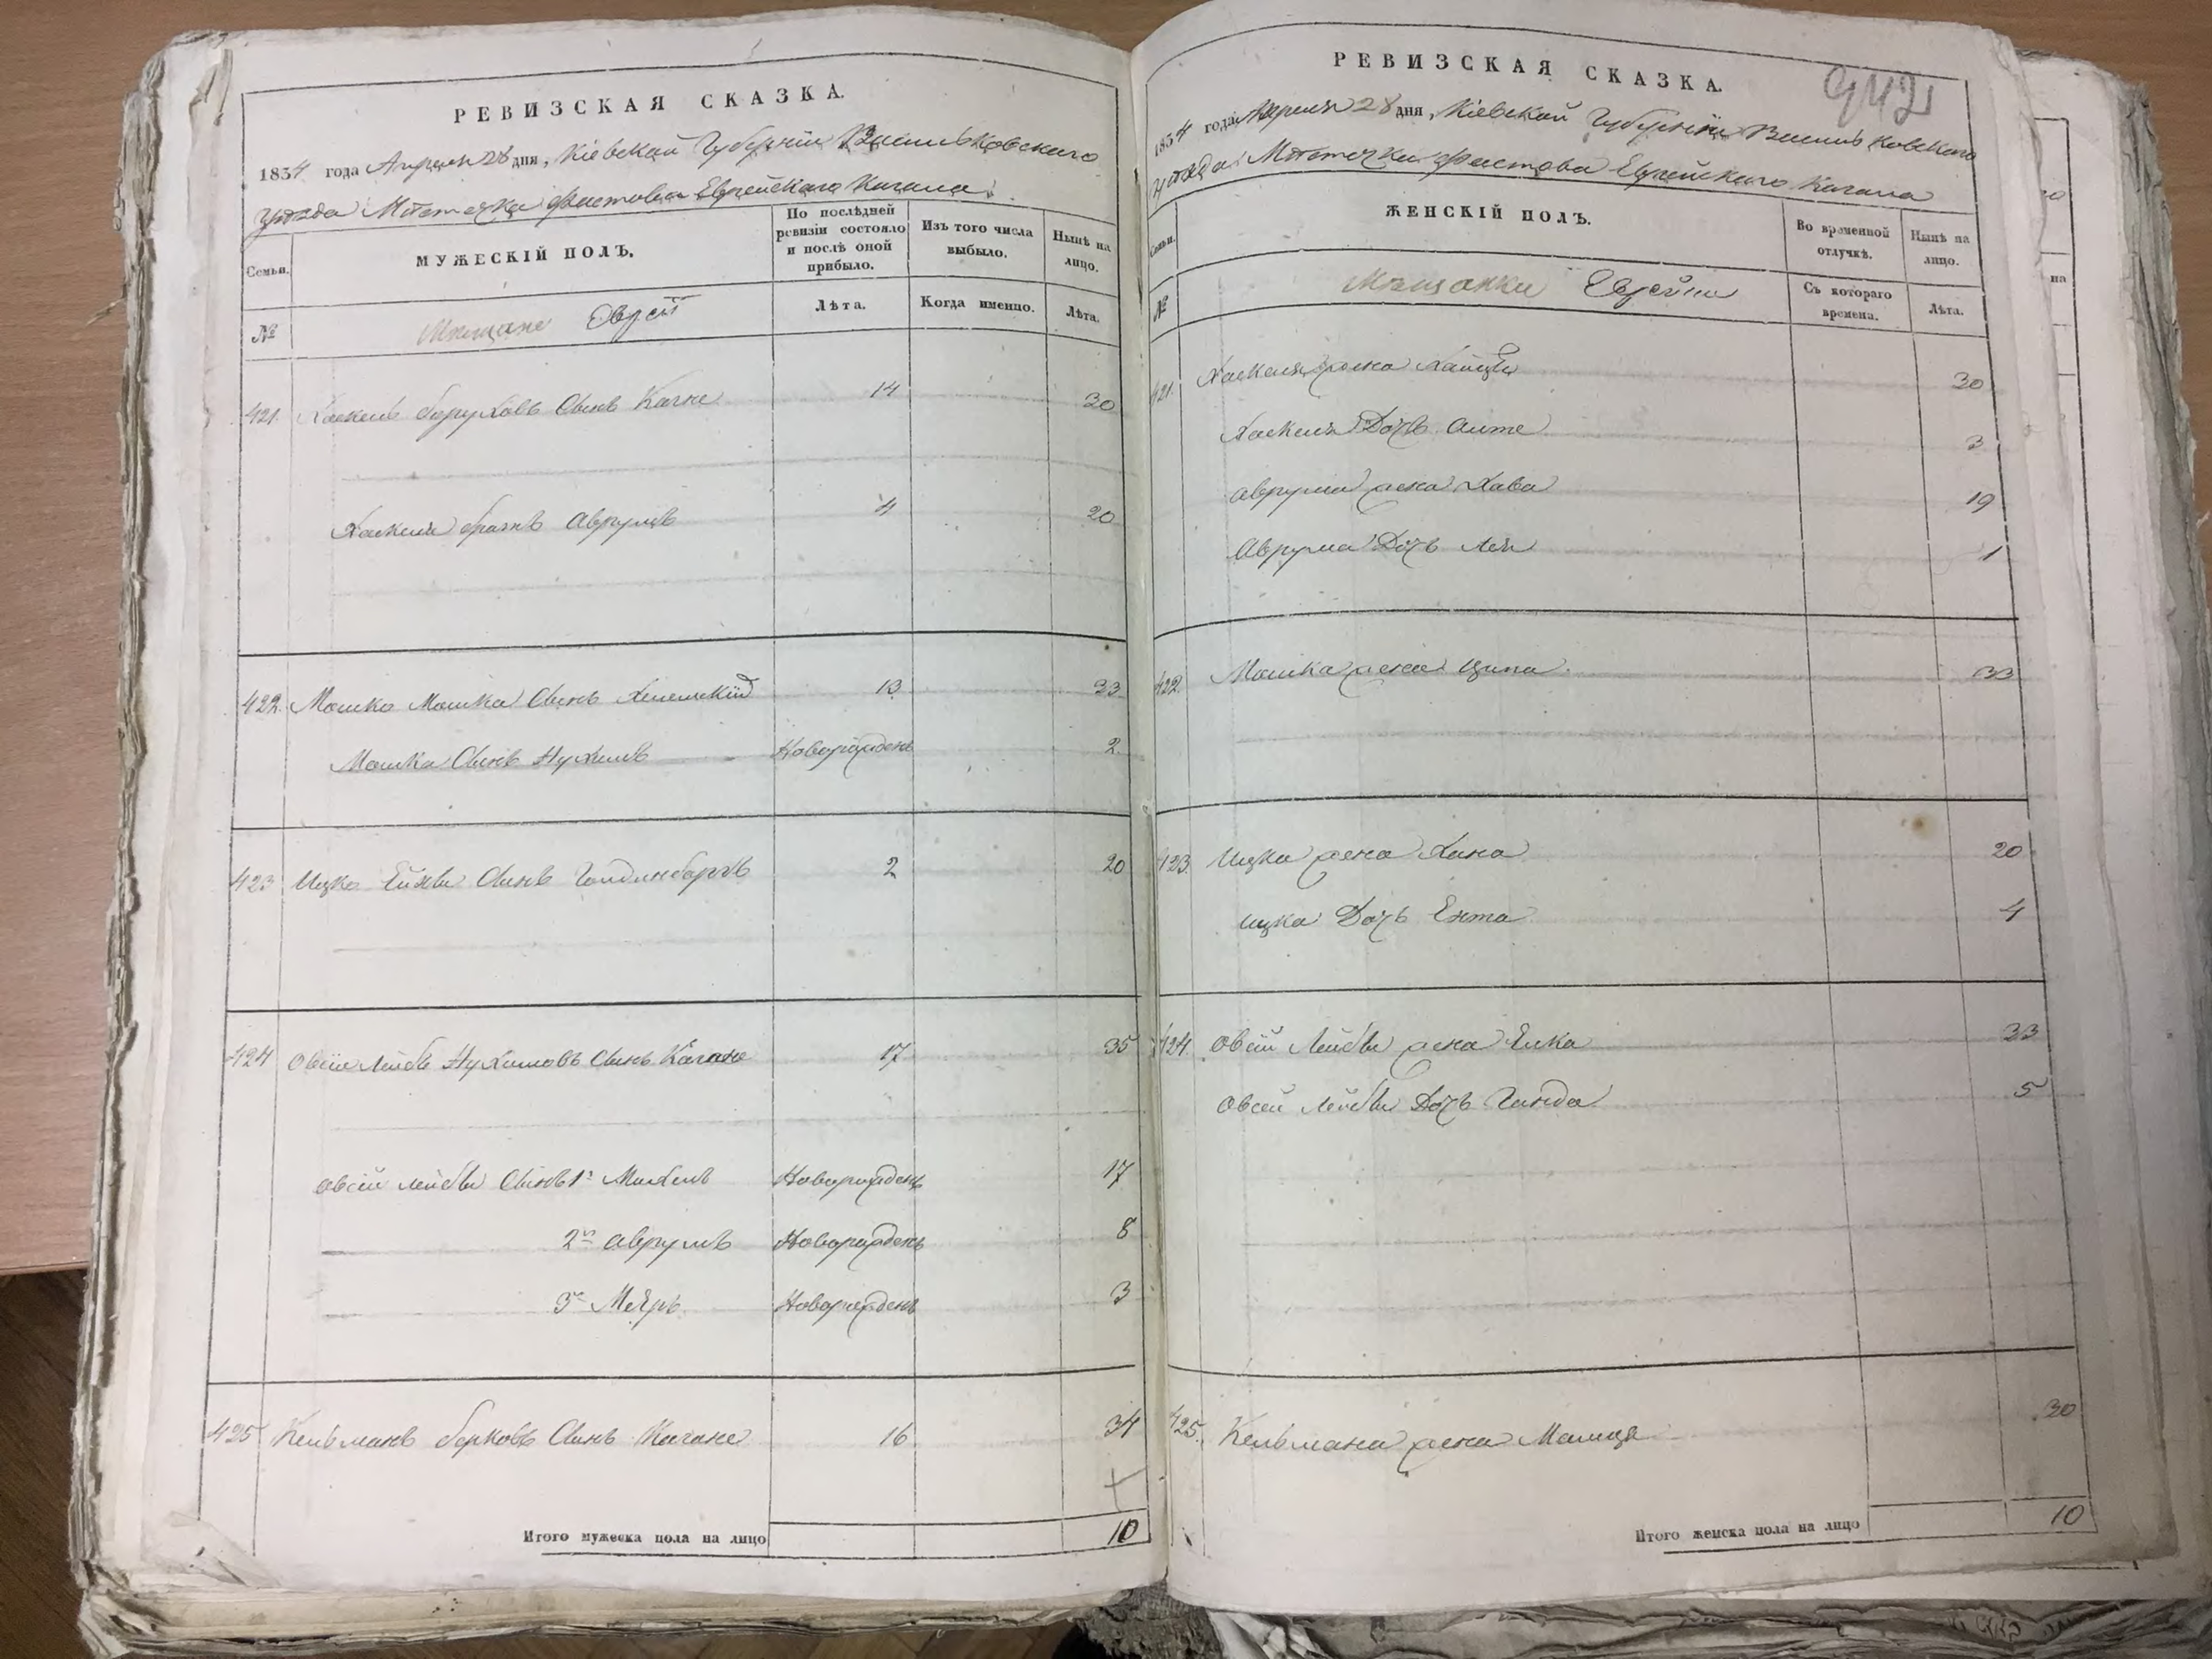 РЕВИЗСКАЯ СКАЗКА.
1834 года Апреля 28 дня, Кіевской Губерніи Васильковского
уѣзда Мѣстечка Фастова Еврейскаго Кагала.
Семьи.
МУЖЕСКІЙ ПОЛЪ.
По послѣдней ревизіи состояло и послѣ оной прибыло.
Изъ того числа выбыло.
Нынѣ на лицо.
№
Мещане Еврей
Лѣта.
Когда именно.
Лѣта.
421. Хаскель Боруховъ Синъ 14 30
Хаскеля братъ Аврумъ 4 20
422. Мошко Мошка Синъ 13 33
Мошка Синъ Нухимъ Новорожденъ 2
423 Ицко Синъ 2 20
424 Овсій Лейбъ Нухимовъ Синъ Кагане 17 35
Овсій Лейбы Синъ 1й Новорожденъ 17
2й Аврумъ Новорожденъ 8
3й Меяръ Новорожденъ 3
425 Кельманъ Берковъ Синъ Кагане 16 34
Итого мужеска пола на лицо 10
РЕВИЗСКАЯ СКАЗКА.
942
1834 года Апреля 28 дня, Кіевской Губерніи Васильковского
уѣзда Мѣстечка Фастова Еврейскаго Кагала
Семьи.
ЖЕНСКІЙ ПОЛЪ.
Во временной отлучкѣ.
Нынѣ на лицо.
№
Мещанки Еврейки
Съ котораго времена.
Лѣта.
421. Хаскеля жена 30
Хаскеля Дочь 3
Аврума жена Хава 19
Аврума Дочь Лея 1
422. Мошка жена Ципа 33
423. Ицка жена Хана 20
Ицка Дочь Ента 4
424. Овсій Лейбы жена Елка 33
Овсей Лейбы Дочь 5
425. Кельмана жена 30
Итого женска пола на лицо 10